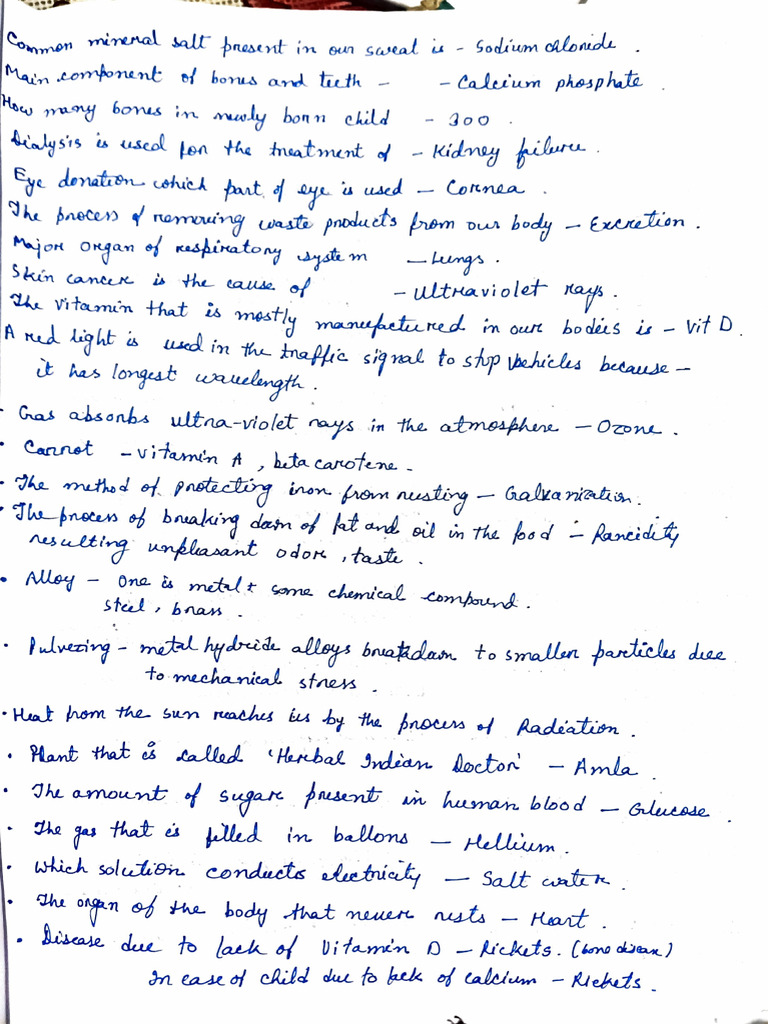 Common mineral salt present in our sweat is - Sodium chloride .
Main component of bones and teeth - - Calcium phosphate .
How many bones in newly born child - 300 .
Dialysis is used for the treatment of - Kidney failure .
Eye donation which part of eye is used - Cornea .
The process of removing waste products from our body - Excretion .
Major organ of respiratory system - Lungs .
Skin cancer is the cause of - Ultraviolet rays .
The vitamin that is mostly manufactured in our bodies is - Vit D .
A red light is used in the traffic signal to stop vehicles because -
it has longest wavelength .
• Gas absorbs ultra-violet rays in the atmosphere - Ozone .
• Carrot - vitamin A , beta carotene -
• The method of protecting iron from rusting - Galvanization .
• The process of breaking down of fat and oil in the food - Rancidity
resulting unpleasant odor , taste .
• Alloy - One is metal + some chemical compound .
steel , brass .
• Pulverzing - metal hydride alloys breakdown to smaller particles due
to mechanical stress .
• Heat from the sun reaches us by the process of Radiation .
• Plant that is called 'Herbal Indian Doctor' - Amla .
• The amount of sugar present in human blood - Glucose .
• The gas that is filled in ballons - Hellium .
• Which solution conducts electricity - Salt water .
• The organ of the body that never rests - Heart .
• Disease due to lack of Vitamin D - Rickets . (bone disease)
In case of child due to lack of calcium - Rickets .